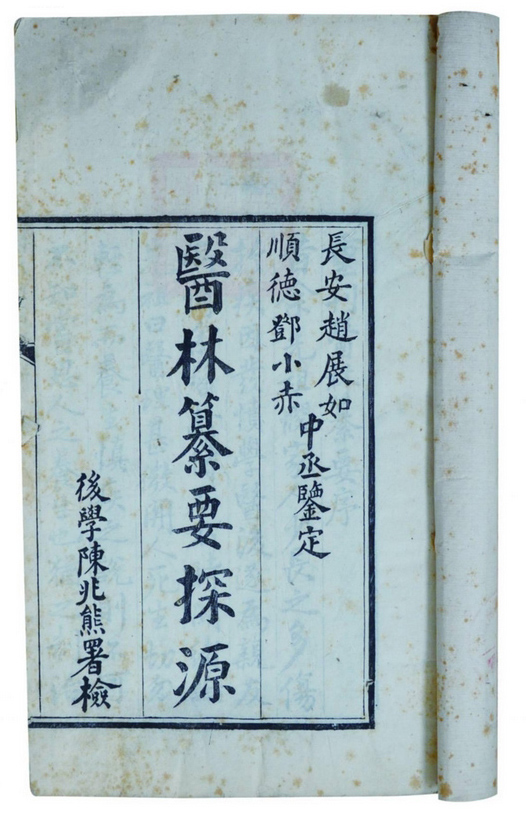 長安趙展如
順徳鄧小赤
中丞鑒定
醫林纂要探源
後學陳兆熊署檢